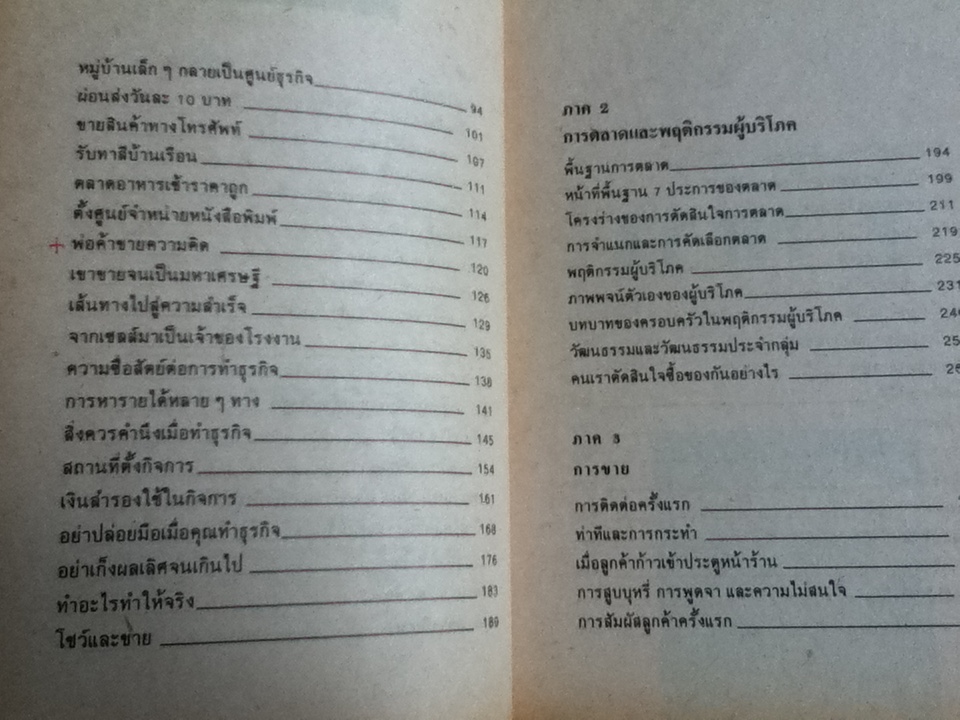 หมู่บ้านเล็ก ๆ กลายเป็นศูนย์ธุรกิจ 94
ผ่อนส่งวันละ 10 บาท 101
ขายสินค้าทางโทรศัพท์ 107
รับทาสีบ้านเรือน 111
ตลาดอาหารเช้าราคาถูก 114
ตั้งศูนย์จำหน่ายหนังสือพิมพ์ 117
+ พ่อค้าขายความคิด 120
เขาขายจนเป็นมหาเศรษฐี 126
เส้นทางไปสู่ความสำเร็จ 129
จากเซลส์มาเป็นเจ้าของโรงงาน 135
ความซื่อสัตย์ต่อการทำธุรกิจ 138
การหารายได้หลาย ๆ ทาง 141
สิ่งควรคำนึงเมื่อทำธุรกิจ 145
สถานที่ตั้งกิจการ 154
เงินสำรองใช้ในกิจการ 161
อย่าปล่อยมือเมื่อคุณทำธุรกิจ 168
อย่าเก็งผลเลิศจนเกินไป 176
ทำอะไรทำให้จริง 183
โชว์และขาย 189
ภาค 2
การตลาดและพฤติกรรมผู้บริโภค
พื้นฐานการตลาด 194
หน้าที่พื้นฐาน 7 ประการของตลาด 199
โครงร่างของการตัดสินใจการตลาด 211
การจำแนกและการคัดเลือกตลาด 219
พฤติกรรมผู้บริโภค 225
ภาพพจน์ตัวเองของผู้บริโภค 231
บทบาทของครอบครัวในพฤติกรรมผู้บริโภค
วัฒนธรรมและวัฒนธรรมประจำกลุ่ม
คนเราตัดสินใจซื้อของกันอย่างไร
ภาค 3
การขาย
การติดต่อครั้งแรก
ท่าทีและการกระทำ
เมื่อลูกค้าก้าวเข้าประตูหน้าร้าน
การสูบบุหรี่ การพูดจา และความไม่สนใจ
การสัมผัสลูกค้าครั้งแรก